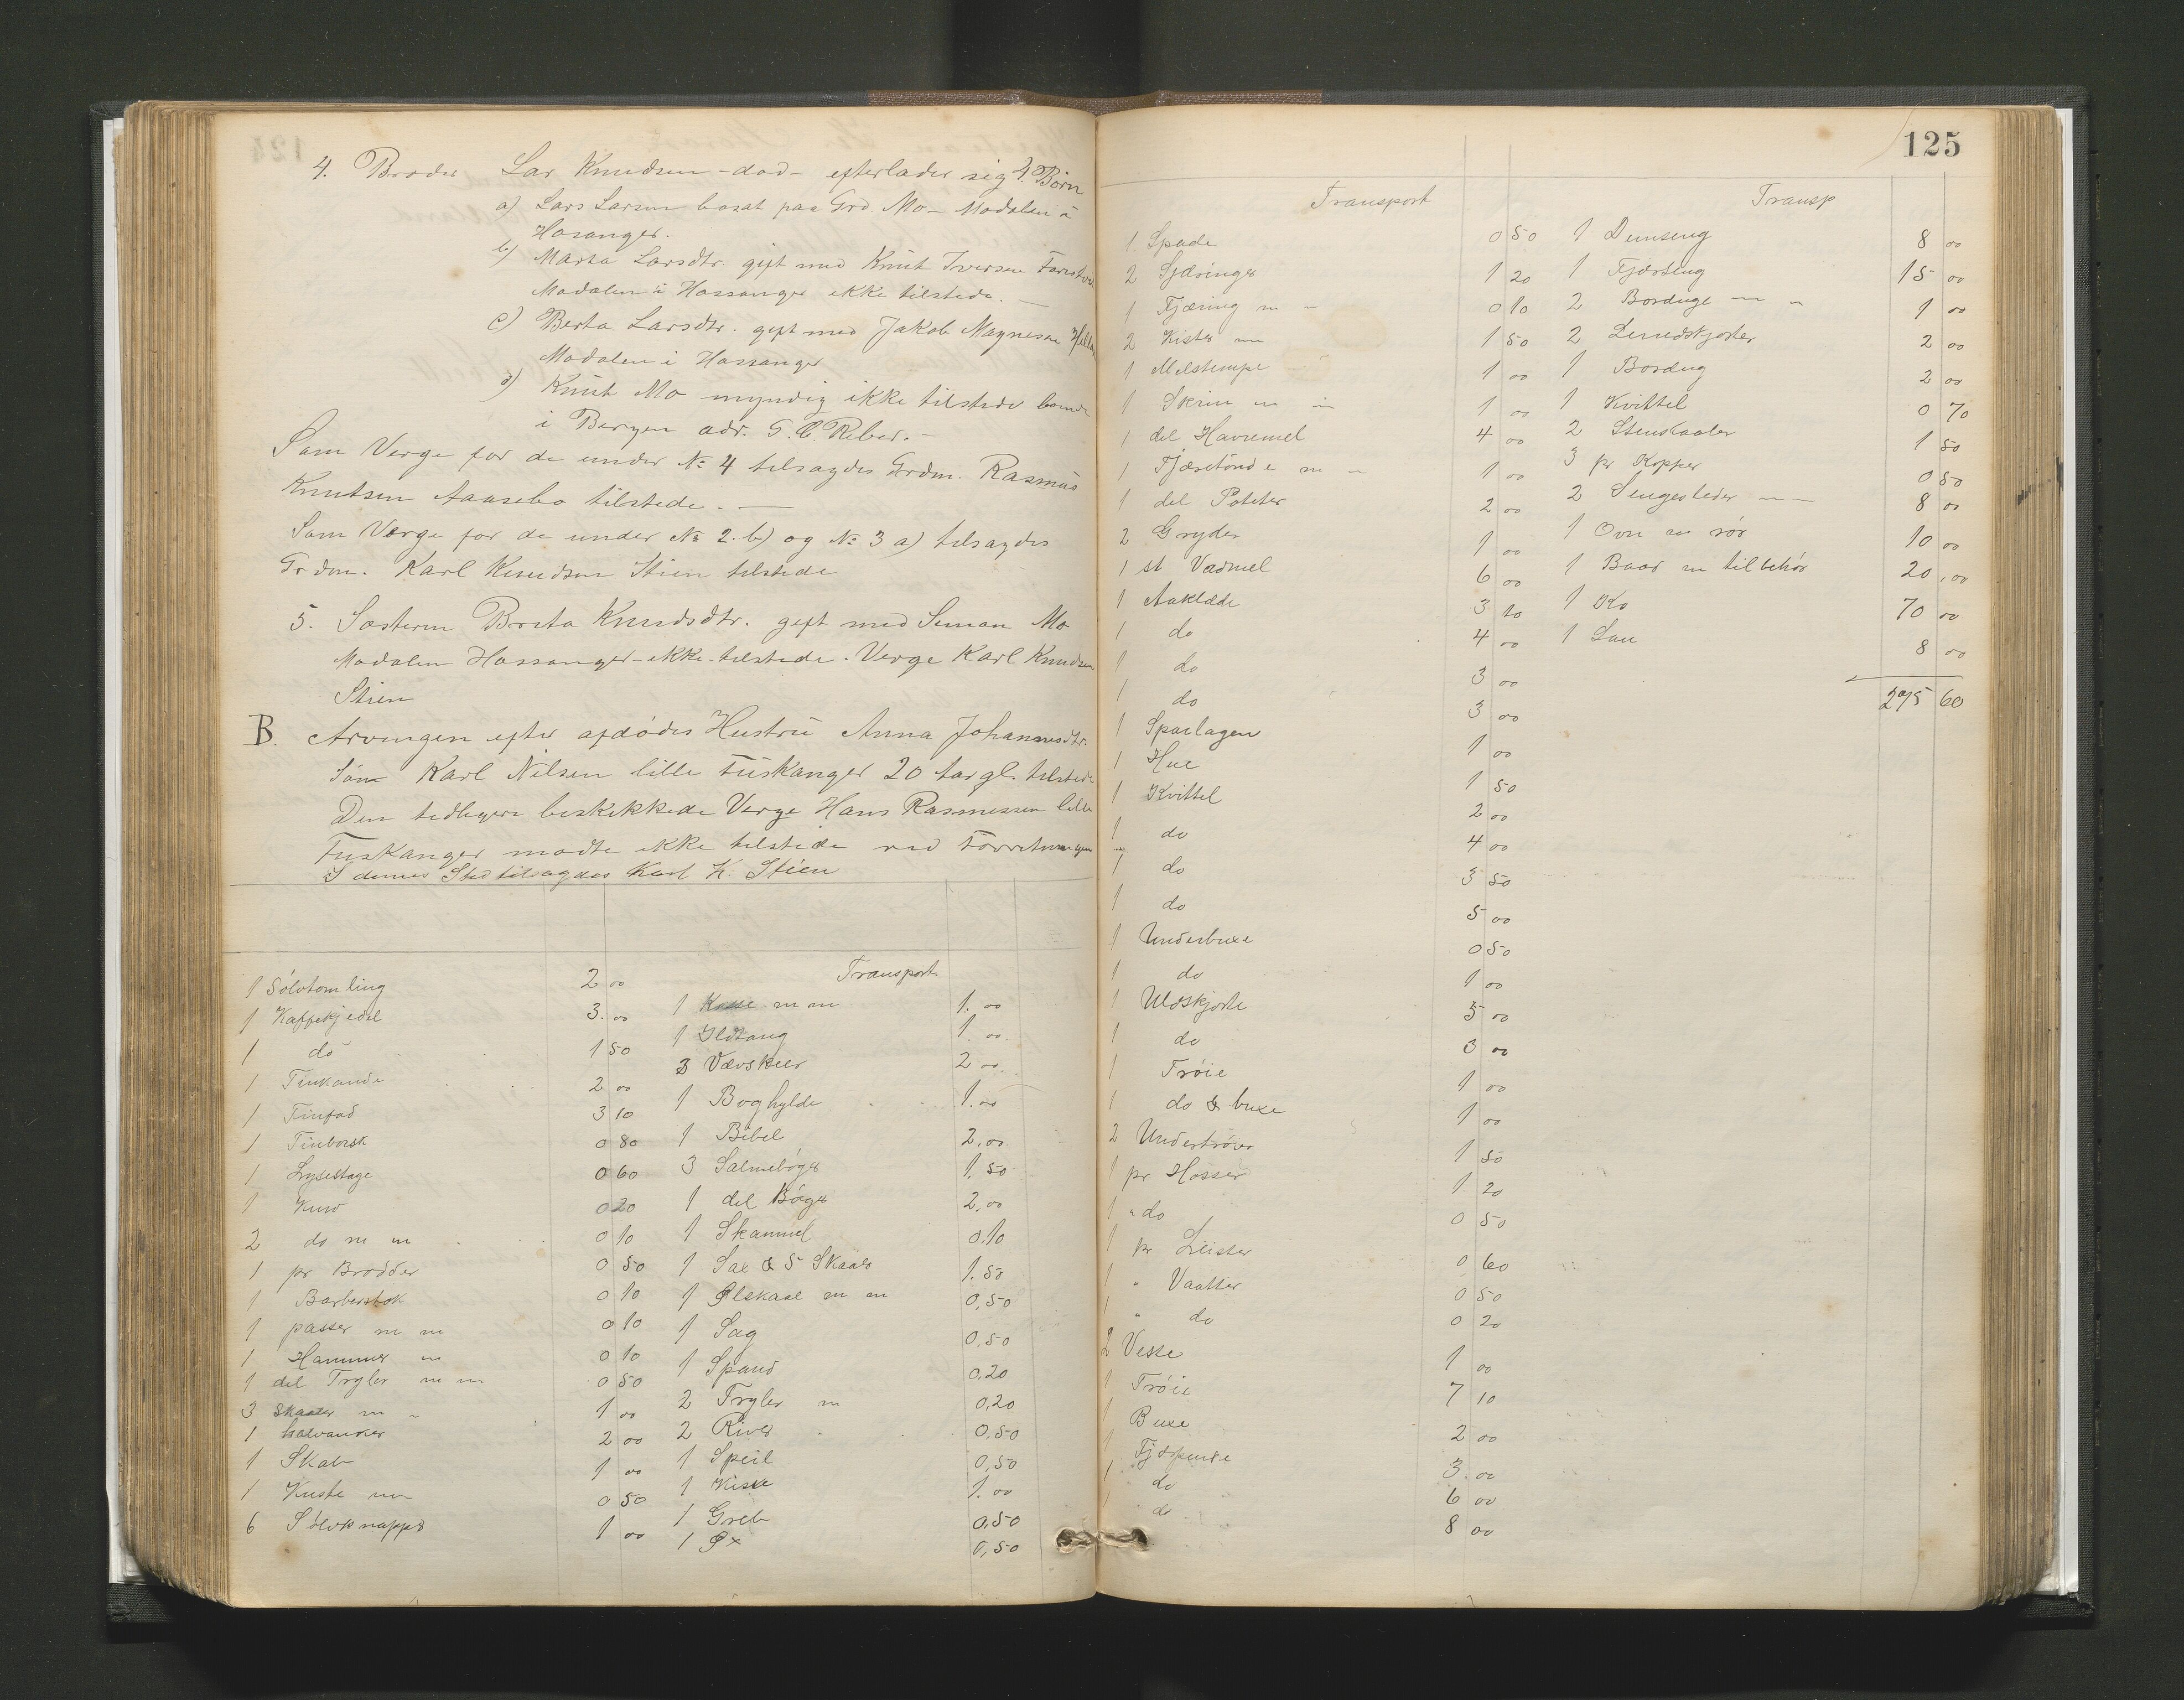 4. Broder Lar Knudsen - død - efterlader sig 4. Børn
a) Lars Larsen bosat paa Grd. Mo - Modalen i
Hosanger.
b) Marta Larsdtr. gift med Knut Iversen
Modalen i Hossanger ikke tilstede. —
c) Berta Larsdtr. gift med Jakob Magnesen
Modalen i Hossanger
d) Knut Mo myndig ikke tilstede
i Bergen adr. G. C. Reber. —
Som Verge for de under № 4 tilsagdes Grdm. Rasmus
Knutsen Aasebø tilstede. —
Som Verge for de under № 2. b) og № 3 a) tilsagdes
Grdm. Karl Knudsen Stien tilstede
5. Søsteren Brita Knudsdtr. gift med Simon Mo
Modalen Hossanger - ikke tilstede. Verge Karl Knudsen
Stien
B. Arvingen efter afdødes Hustru Anna Johannesdtr.
Søn Karl Nilsen lille Fuskanger 20 Aar gl. tilstede
Den tidligere beskikkede Verge Hans Rasmussen lille
Fuskanger mødte ikke tilstede ved Forretningen
I dennes Sted tilsagdes Karl K. Stien
1 Sølvtomling 2 00
1 Kaffekjedel 3. 00
1 do 1 50
1 Tinkande 2 00
1 Tinfad 3 10
1 0 80
1 Lysestage 0 60
1 0 20
2 do m m 0 10
1 pr Brodder 0 50
1 0 10
1 passer m m 0 10
1 Hammer m 0 10
1 del Tryler m m 0 50
3 Skaaler m 1 00
1 halvanker 2 00
1 Skab 1 00
1 Kiste m 0 50
6 Sølvknapper 1 00
Transport
1 Kasse m m 1. 00
1 Ildtang 1. 00
3 Vævskeer 2 00
1 Boghylde 1. 00
1 Bibel 2,00
3 Salmebøger 1. 50
1 del Bøger 2,00
1 Skammel 0.10
1 Sax & 5 Skaaler 1. 50
1 Ølskaal m m 0,50
1 Sag 0,50
1 Spand 0,20
2 Tryler m 0,20
2 River 0,50
1 Speil 0,50
1 Kiste 1. 00
1 Greb 0,50
1 Øx 0,50
125
Transport
1 Spade 0 50
2 Fjæringer 1 20
1 Fjæring m 0 10
2 Kister m 1 50
1 Melstampe 1 00
1 Skrin m 1 00
1 del Havremel 4 00
1 Tjæretønde m 1 00
1 del Poteter 2 00
2 Gryder 1 00
1 st Vadmel 6 00
1 Aaklæde 3 10
1 do 4 00
1 do 3 00
1 do 3 00
1 Sparlagen 1 00
1 Hue 1 50
1 Kvittel 2 00
1 do 4 00
1 do 3 50
1 do 5 00
1 Underbuxe 0 50
1 do 1 00
1 Uldskjorte 5 00
1 do 3 00
1 Trøie 1 00
1 do & buxe 1 00
2 Undertrøier 1 50
1 pr Hosser 1 20
1 " do 0 50
1 pr Leister 0 60
1 " Vaatter 0 50
1 " do 0 20
2 Veste 1 00
1 Trøie 7 10
1 Buxe 2 00
1 3. 00
1 do 6 00
1 do 8 00
Transp
1 Dunseng 8 00
1 Fjærseng 15 00
2 Borduge 1 00
2 Lerredskjorter 2 00
1 Bordug 2 00
1 Kvittel 0 70
2 Stenskaaler 1 50
3 pr Kopper 0 50
2 Sengesteder 8 00
1 Ovn m rør 10 00
1 Baad m tilbehør 20,00
1 Ko 70 00
1 Sau 8 00
275 60